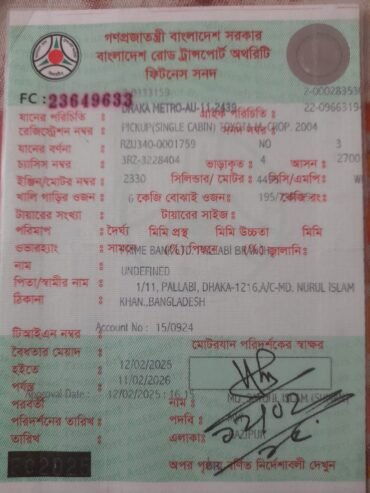 গণপ্রজাতন্ত্রী বাংলাদেশ সরকার
বাংলাদেশ রোড ট্রান্সপোর্ট অথরিটি
ফিটনেস সনদ
2-000283530
FC : 23649633
DHAKA METRO-AU-11-2439
22-0966319
যানের পরিচিতি : গ্রাহক পরিচিতি :
রেজিস্ট্রেশন নম্বর : PICKUP(SINGLE CABIN) TOYOTA 2004
যানের বর্ণনা : RZU340-0001759 NO 3
চ্যাসিস নম্বর : 3RZ-3228404 ভাড়াকৃত : 4 আসন : 2700
ইঞ্জিন/মোটর নম্বর : 2330 সিলিন্ডার/ মোটর : সিসি/এমপি:
খালি গাড়ির ওজন : 6 কেজি বোঝাই ওজন: 195/ কেজি রং:
টায়ারের সংখ্যা : টায়ারের সাইজ :
পরিমাপ : দৈর্ঘ্য মিমি প্রস্থ মিমি উচ্চতা মিমি
ওভারহ্যাং : সামনে (%) পিছনে (%) জ্বালানি:
নাম :
UNDEFINED
পিতা/স্বামীর নাম :
1/11, PALLABI, DHAKA-1216,A/C-MD. NURUL ISLAM
ঠিকানা :
KHAN.,BANGLADESH
টিআইএন নম্বর :
Account No : 15/0924
বৈধতার মেয়াদ : মোটরযান পরিদর্শকের স্বাক্ষর
হইতে : 12/02/2025
পর্যন্ত : 11/02/2026
Approval Date : 12/02/2025 : 16.15
পরবর্তী নাম :
পরিদর্শনের তারিখ : পদবি :
তারিখ : এলাকা:
অপর পৃষ্ঠায় বর্ণিত নির্দেশাবলী দেখুন